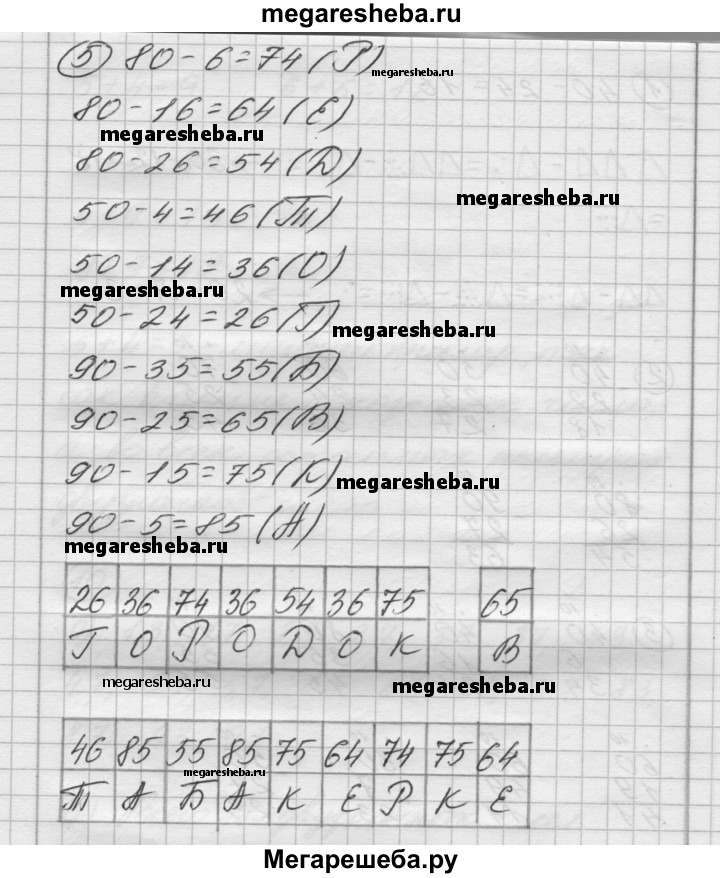 megaresheba.ru
5 80-6=74(Р)
megaresheba.ru
80-16=64(Е)
megaresheba.ru
80-26=54(Д)
megaresheba.ru
50-4=46(Т)
50-14=36(О)
megaresheba.ru
50-24=26(Г)
megaresheba.ru
90-35=55(Б)
90-25=65(В)
90-15=75(К)
megaresheba.ru
90-5=85(А)
megaresheba.ru
26 36 74 36 54 36 75 65
Г О Р О Д О К В
megaresheba.ru
megaresheba.ru
46 85 55 85 75 64 74 75 64
megaresheba.ru
Т А Б А К Е Р К Е
Мегарешеба.ру